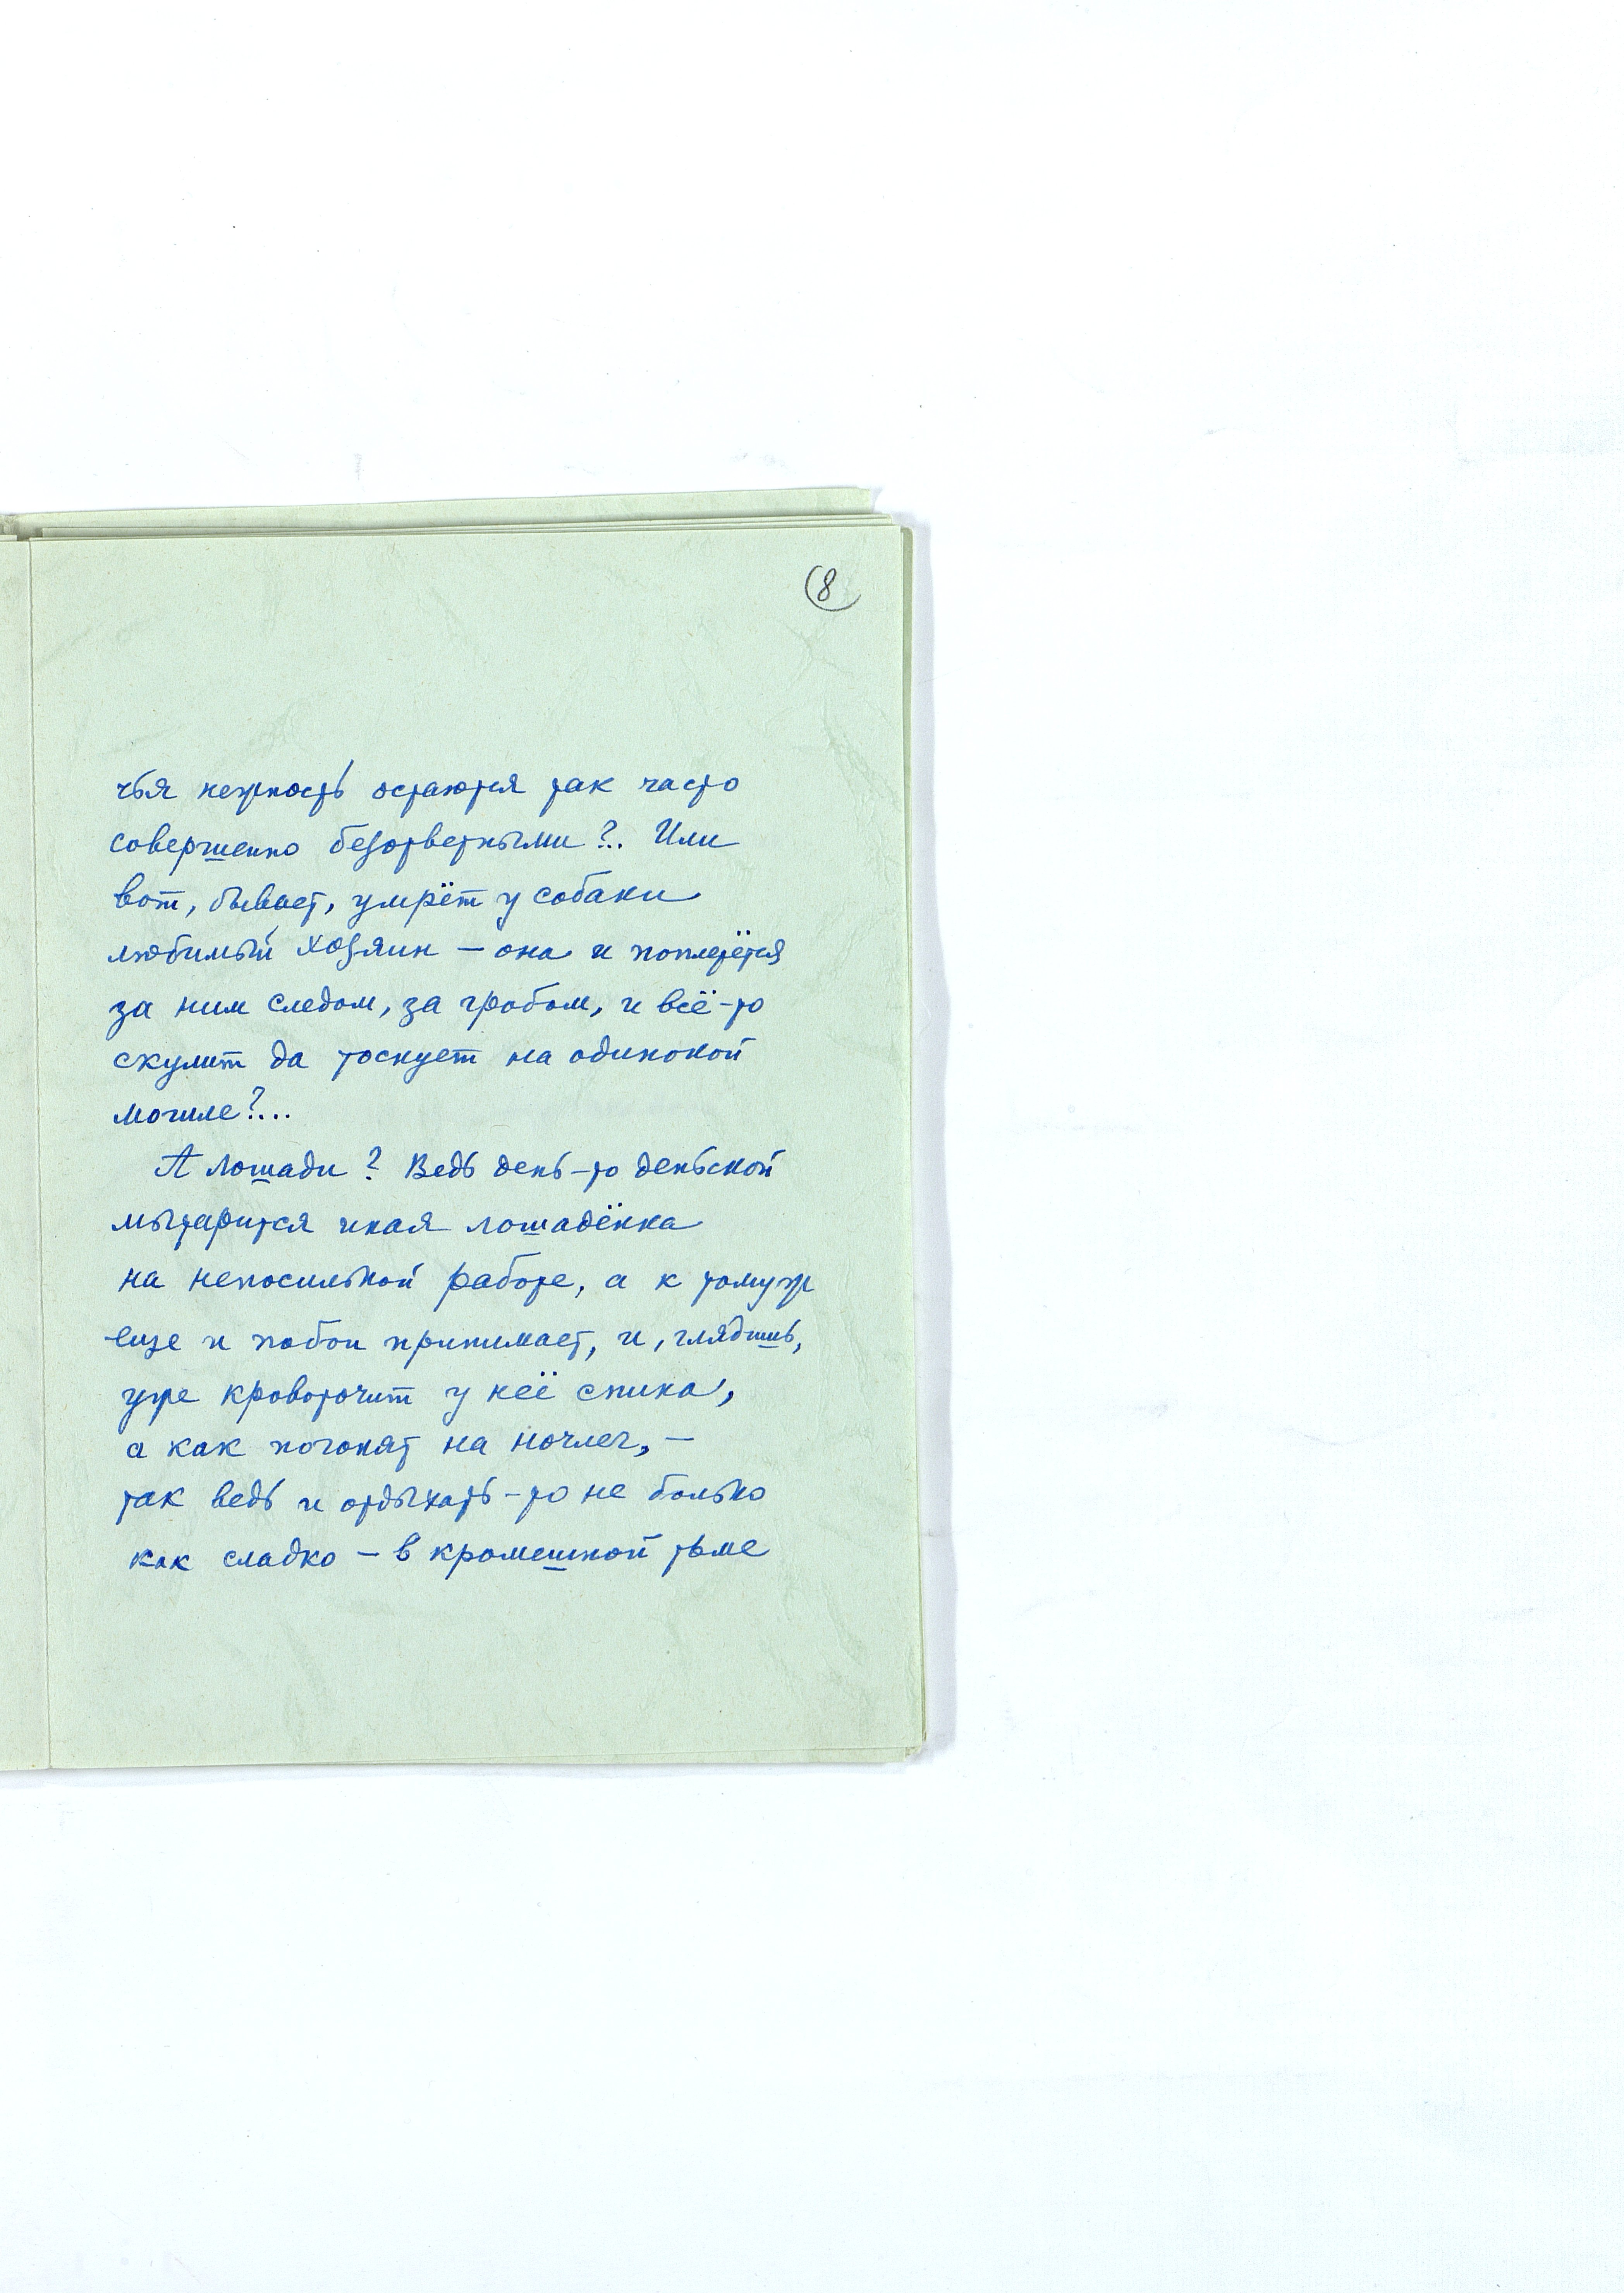 8
чья нежность остаются так часто
совершенно безответными?.. Или
вот, бывает, умрёт у собаки
любимый хозяин — она и поплетётся
за ним следом, за гробом, и всё-то
скулит да тоскует на одинокой
могиле?...
А лошади? Ведь день-то деньской
мытарится иная лошадёнка
на непосильной работе, а к томуж
еще и побои принимает, и, глядишь,
уже кровоточит у неё спина,
а как погонят на ночлег, —
так ведь и отдыхать-то не больно
как сладко — в кромешной тьме